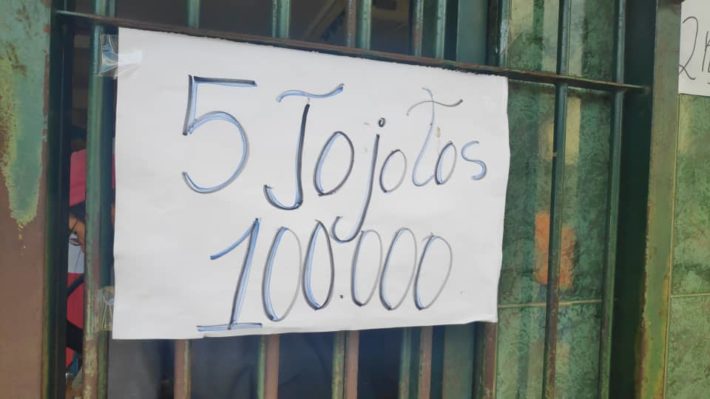 5 Tojotos
100.000
2